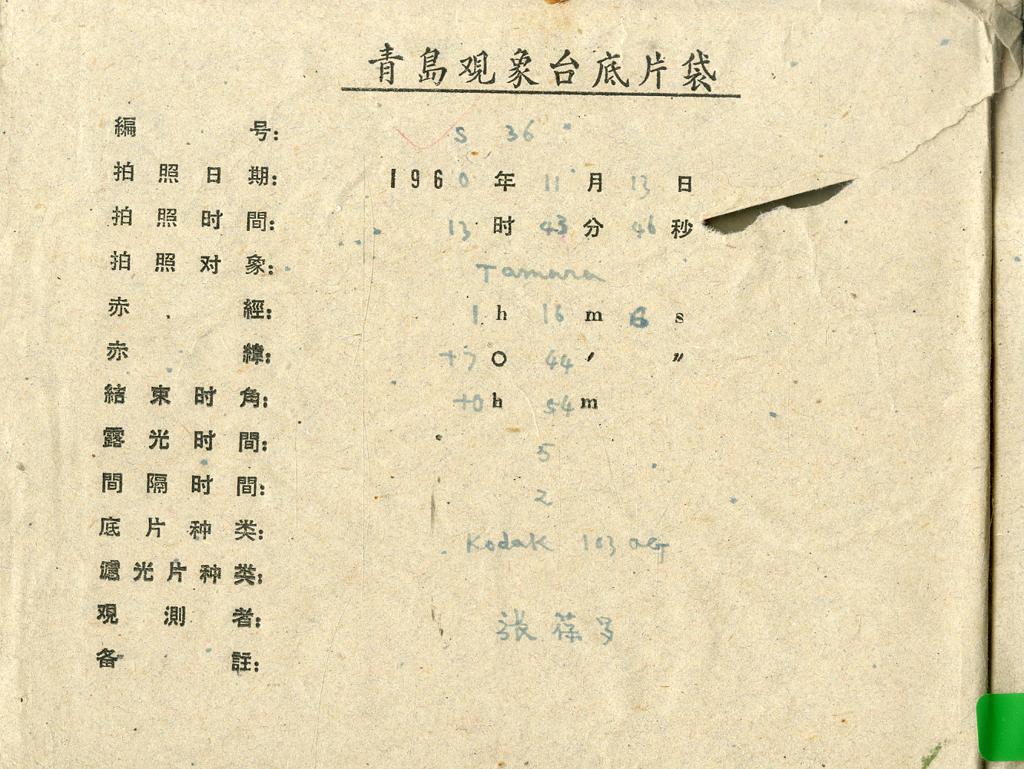 青島观象台底片袋
編 号: S 36
拍照日期: 1960年11月13日
拍照时間: 13时43分46秒
拍照对象: Tamara
赤 經: 1h 16m 6s
赤 緯: +7° 44′ ″
結束时角: +0h 54m
露光时間: 5
間隔时間: 2
底片种类: Kodak 103 aG
濾光片种类:
观測者: 張葆
备 註: